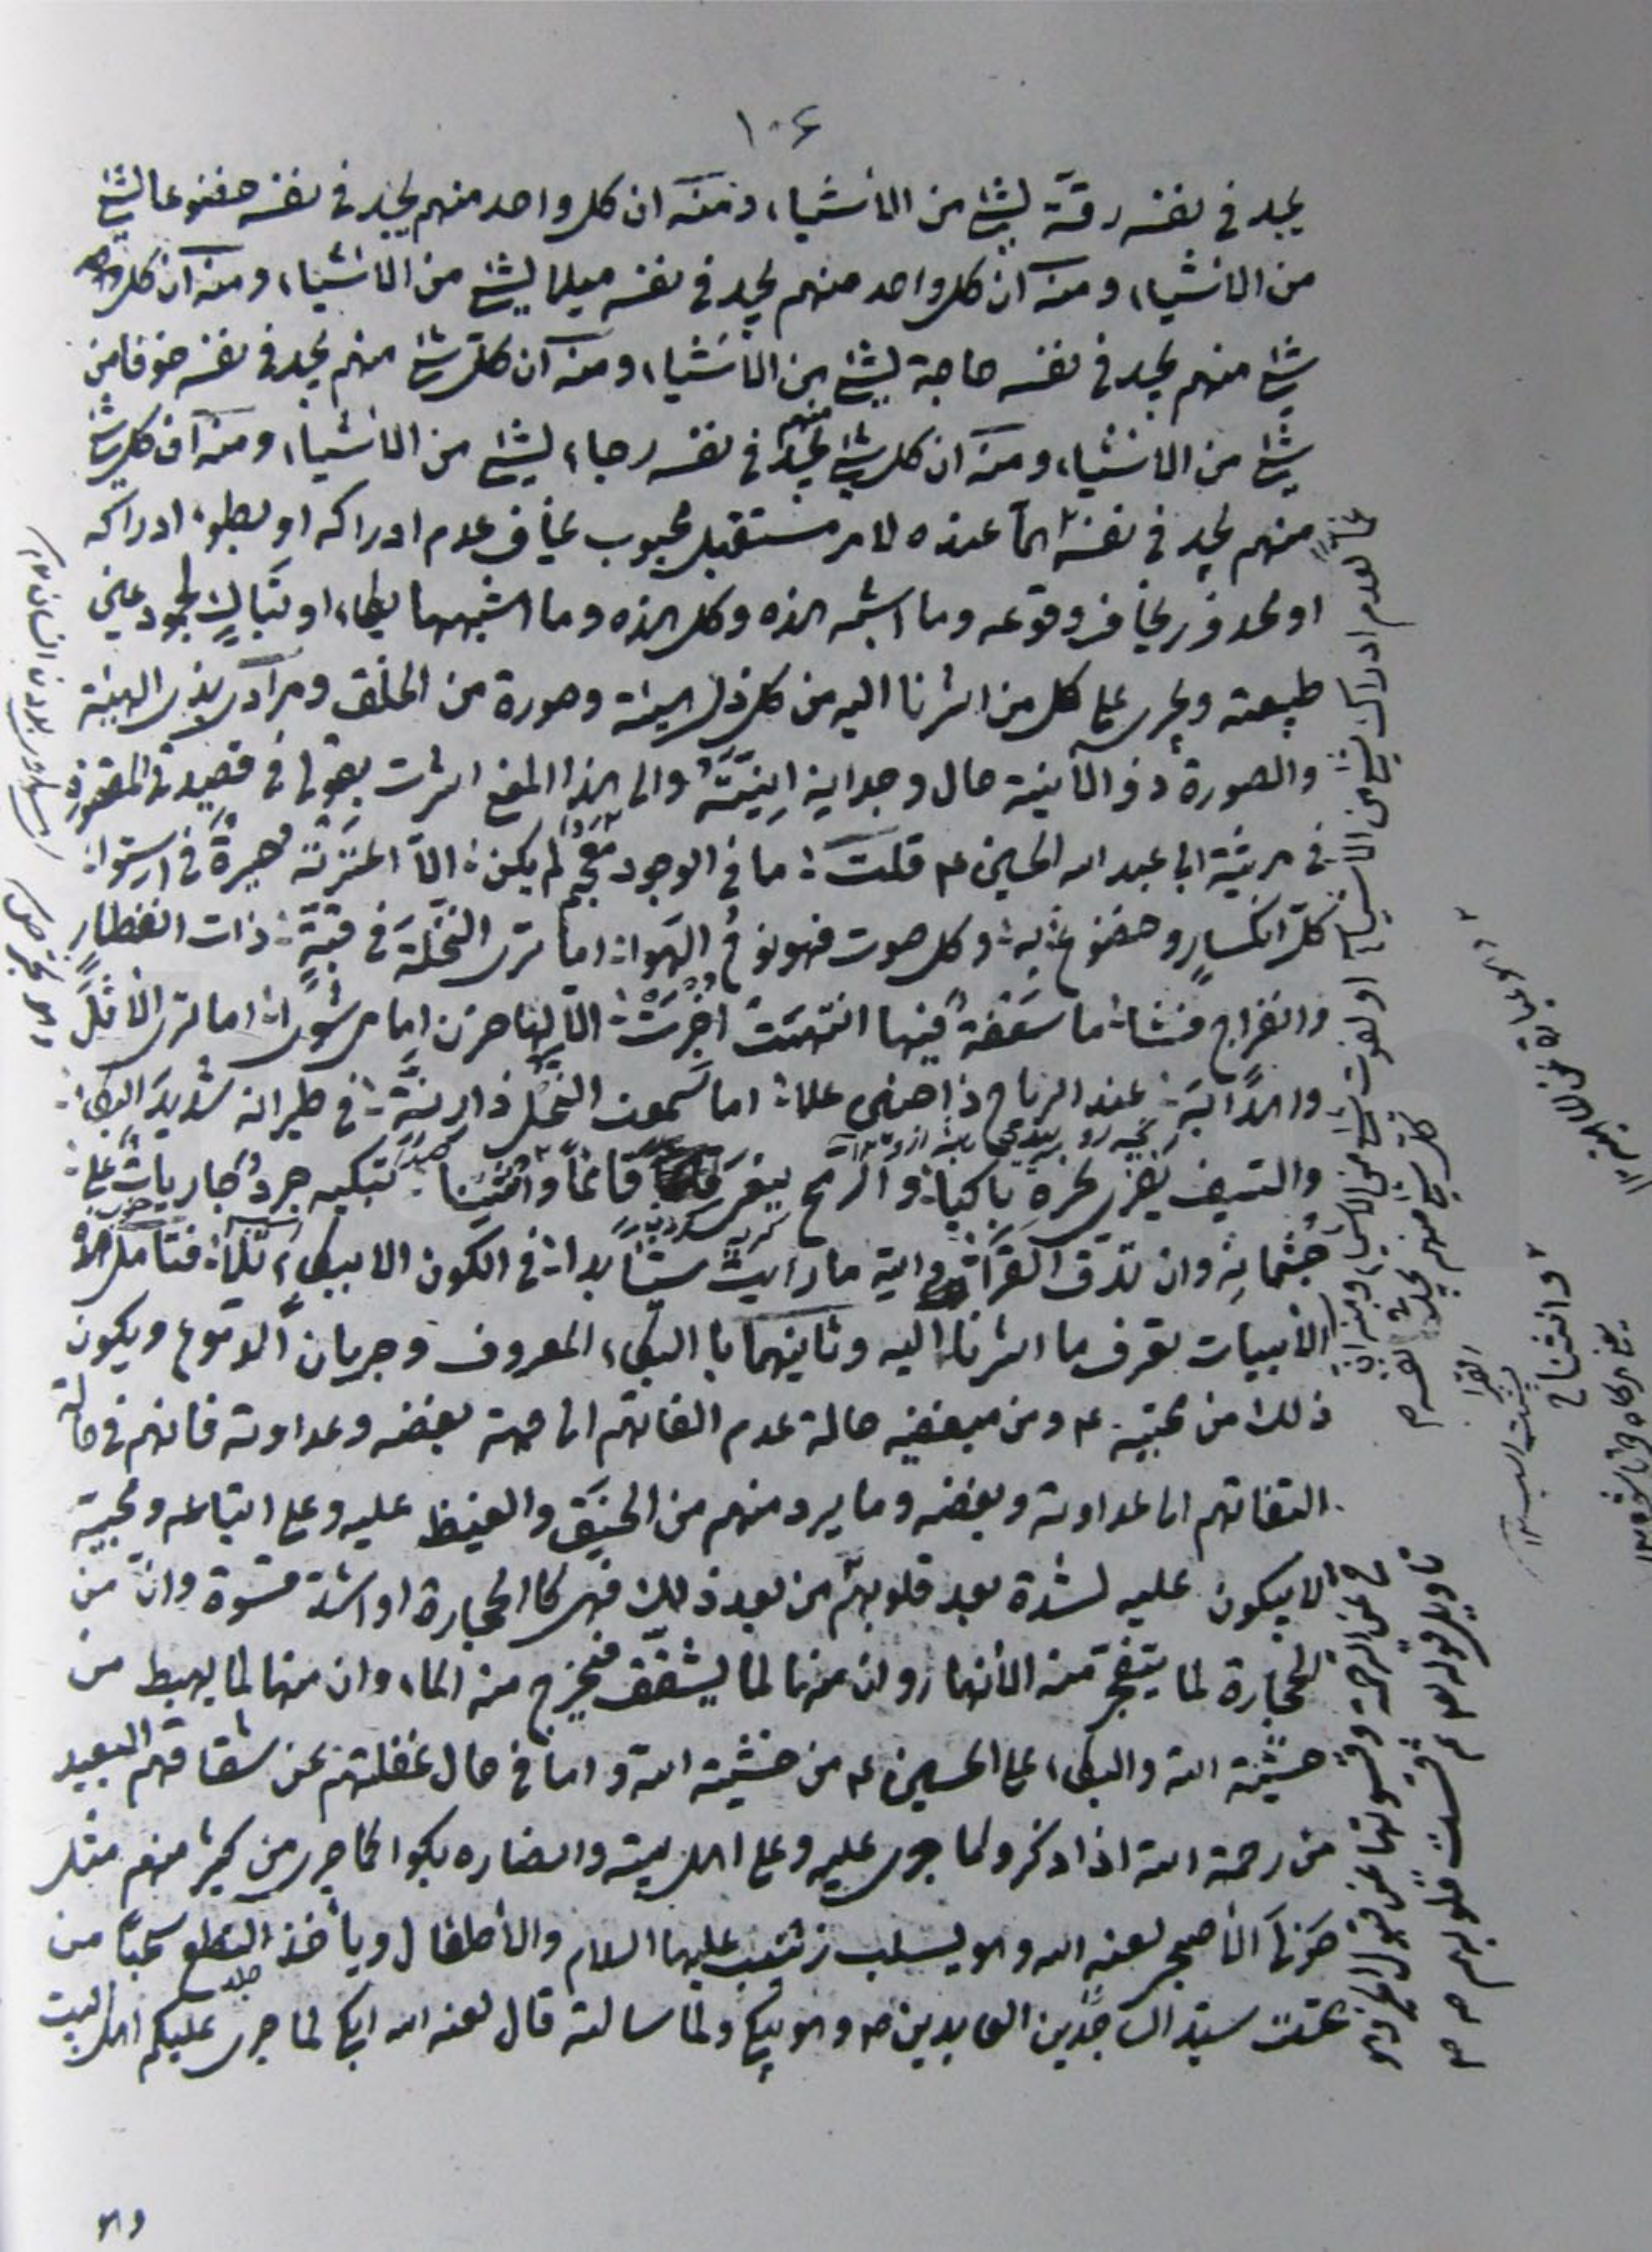 ١٠۶
يجد في نفسه رقة لشئ من الاشياء ومنه ان كل واحد منهم يجد في نفسه خضوعا لشئ
من الاشياء ومنه ان كل واحد منهم يجد في نفسه ميلا لشئ من الاشياء ومنه ان كل
شئ منهم يجد في نفسه حاجة لشئ من الاشياء ومنه ان كل شئ منهم يجد في نفسه خوفا من
شئ من الاشياء ومنه ان كل شئ منهم يجد في نفسه رجاء لشئ من الاشياء ومنه ان كل شئ
منهم يجد في نفسه الما عنده لامر مستقبل محبوب يخاف عدم ادراكه او بطوء ادراكه
او محذور يخاف وقوعه وما اشبه هذه وكل هذه وما اشبهها بكاء او تباك لجمود عين
طبيعته ويجري على كل من اشرنا اليه من كل ذلك هيئة وصورة من الخلق ومرادي بذي الهيئة
والصورة ذو الانية حال وجدانه انيته والى هذا المعنى اشرت بقولي في قصيدتي المقصورة
في مرثية ابا عبد الله الحسين ع قلت : ما في الوجود معجم لم يكن : الا اعترته حيرة في استوا :
كل انكسار وخضوع به : وكل صوت فهو نوح الهوا : اما ترى النخلة في قبة : ذات انفطار
وانفراج فشا : ما سعفة فيها انتهت اخبرت : الا لها حزن امامي شوى : اما ترى الاثل
واهدابه : عند الرياح ذا حنين علا : اما سمعت النحل ذا رنة : في طيرانه شديد البكا :
والسيف يفري نحره باكيا : والرمح ينعى قائما وانثنى : تبكيه جرد جاريات على :
جثمانه وان تدق القرا : والله ما رايت شيئا بدا : في الكون الا ببكاء تلا : فتأمل هذه
الابيات تعرف ما اشرنا اليه وثانيهما با البكاء المعروف وجريان الدموع ويكون
ذلك من محبيه ع ومن مبغضيه حالة عدم التفاتهم الى جهة بغضه وعداوته فانهم في حالة
التفاتهم الى عداوته وبغضه وما يرد منهم من الحنق والغيظ عليه وعلى اتباعه ومحبيه
لا يبكون عليه لشدة بعد قلوبهم من بعد ذلك فهي كالحجارة او اشد قسوة وان من
الحجارة لما يتفجر منه الانهار وان منها لما يشقق فيخرج منه الماء وان منها لما يهبط من
خشية الله والبكاء على الحسين ع من خشية الله واما في حال غفلتهم عن شقاقهم البعيد
من رحمة الله اذا ذكروا ما جرى عليه وعلى اهل بيته وانصاره بكوا كما جرى من كثير منهم مثل
خولي الاصبحي لعنه الله وهو يسلب زينب عليها السلام والاطفال ويأخذ النطع سحبا من
تحت سيد الساجدين العابدين ص وهو يبكي ولما سالته قال لعنه الله ابكي لما جرى عليكم اهل البيت
وهو
خائفا لعدم ادراك شئ من الاشياء او لفوت شئ من الاشياء ومنه ان
كل شئ منهم يجد في نفسه
ح عن الرحمة وقسوتها عن قبول الخير وهو
تأويل قوله تعالى ثم قست قلوبكم ص م